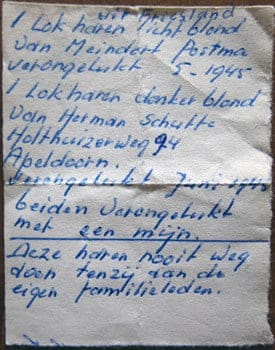 uit Friesland
1 Lok haren licht blond
van Meindert Postma
verongelukt 5-1945
1 Lok haren donker blond
van Herman Schutte
Holthuizerweg 94
Apeldoorn.
verongelukt Juni 1945
beiden verongelukt
met een mijn.
Deze haren nooit weg
doen tenzij aan de
eigen familieleden.